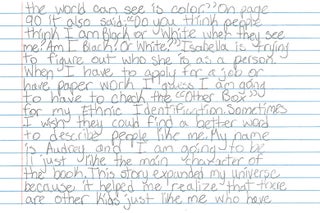 the world can see is color." On page
90 it also said, "Do you think people
think I am Black or White when they see
me? Am I Black? Or White?" Isabella is trying
to figure out who she is as a person.
When I have to apply for a job or
have paper work I guess I am going
to have to check the "Other Box"
for my Ethnic Identification. Sometimes
I wish they could find a better word
to describe people like me. My name
is Audrey and I am going to be
11 just like the main character of
the book. This story expanded my universe
because it helped me realize that there
are other kids just like me who have